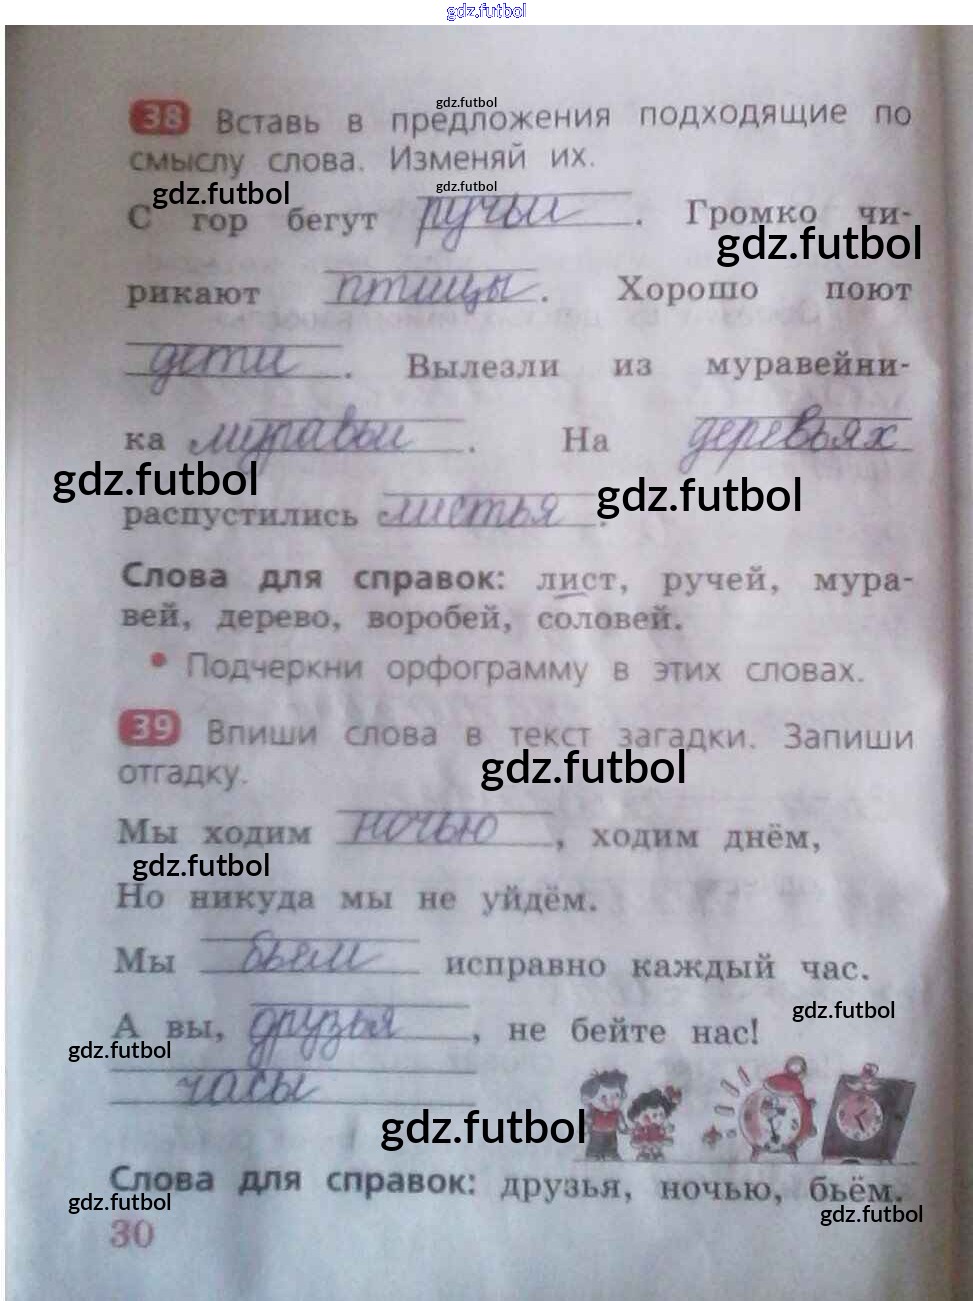 gdz.futbol
gdz.futbol
38 Вставь в предложения подходящие по
смыслу слова. Изменяй их.
gdz.futbol
gdz.futbol
С гор бегут ручьи. Громко чи-
gdz.futbol
рикают птицы. Хорошо поют
дети. Вылезли из муравейни-
ка муравьи. На деревьях
gdz.futbol
gdz.futbol
распустились листья.
Слова для справок: лист, ручей, мура-
вей, дерево, воробей, соловей.
• Подчеркни орфограмму в этих словах.
39 Впиши слова в текст загадки. Запиши
отгадку.
gdz.futbol
Мы ходим ночью, ходим днём,
gdz.futbol
Но никуда мы не уйдём.
Мы бьем исправно каждый час.
gdz.futbol
А вы, друзья, не бейте нас!
gdz.futbol
часы
gdz.futbol
Слова для справок: друзья, ночью, бьём.
gdz.futbol
gdz.futbol
30